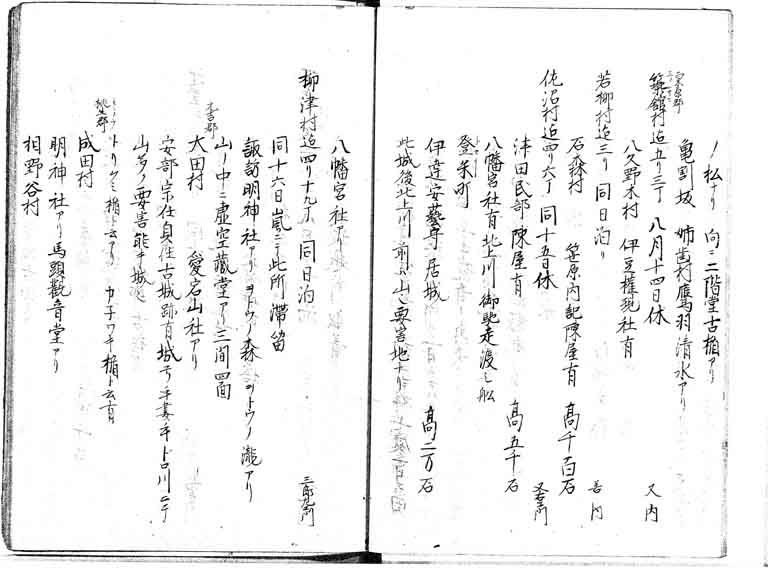 ノ松ナリ 向ニ二階堂古楯アリ
亀割坂 姉歯村鷹羽清水アリ
栗原郡
築舘村迄五リ三丁 八月十四日休 又内
八久野木村 伊豆權現社有
若柳村迄三リ 同日泊リ 善内
石森村 笹原内記陳屋有 高千百石
佐沼村迄四リ六丁 同十五日休 又右エ門
津田民部陳屋有 高五千石
八幡宮社有北上川 御馳走渡シ舩
登米町
伊達安藝守居城 高二万石
此城後北上川 前ハ山ニ要害地ナリ
八幡宮社アリ
柳津村迄四リ十九丁 同日泊 三郎左エ門
同十六日嵐ニテ此所滞留
諏訪明神社アリ ヲトウノ森 ヲトウノ瀧アリ
山ノ中ニ虚空藏堂アリ三間四面
本吉郡
大田村 愛宕山社アリ
安部宗任貞任古城跡有城ヲ
山多ク要害能キ城
トリクミ楯ト云アリ カ子ワキ楯ト云有
桃生郡
成田村
明神社アリ馬頭觀音堂アリ
相野谷村